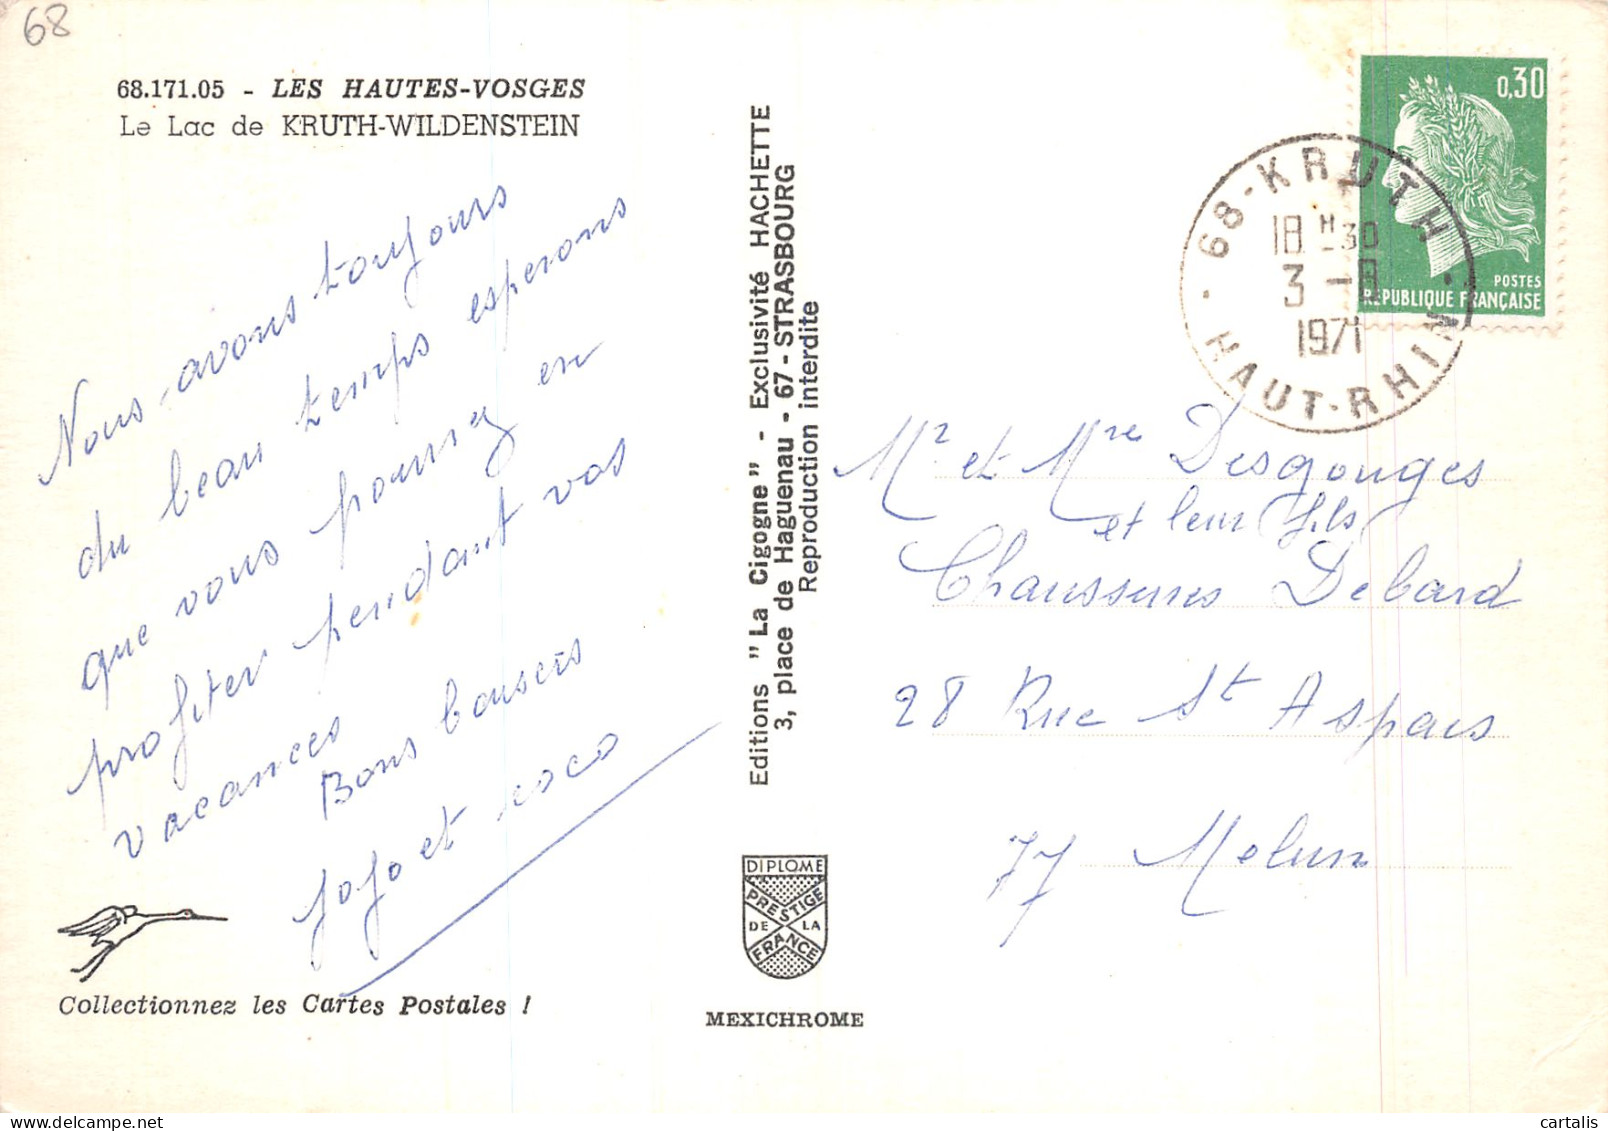 68
68.171.05 - LES HAUTES-VOSGES
Le Lac de KRUTH-WILDENSTEIN
Nous avons toujours
du beau temps esperons
que vous pourrez en
profiter pendant vos
vacances
Bons baisers
Jojo et coco
Collectionnez les Cartes Postales !
Editions "La Cigogne" - Exclusivité HACHETTE
3, place de Haguenau - 67 - STRASBOURG
Reproduction interdite
DIPLOME
PRESTIGE
DE LA
FRANCE
MEXICHROME
0,30
POSTES
REPUBLIQUE FRANÇAISE
68 - KRUTH
18 H 30
3 - 8
1971
HAUT-RHIN
Mr et Mre Desgouges
et leur fils
Chaussures Debard
28 Rue St Aspais
77 Melun
www.cartalis.com